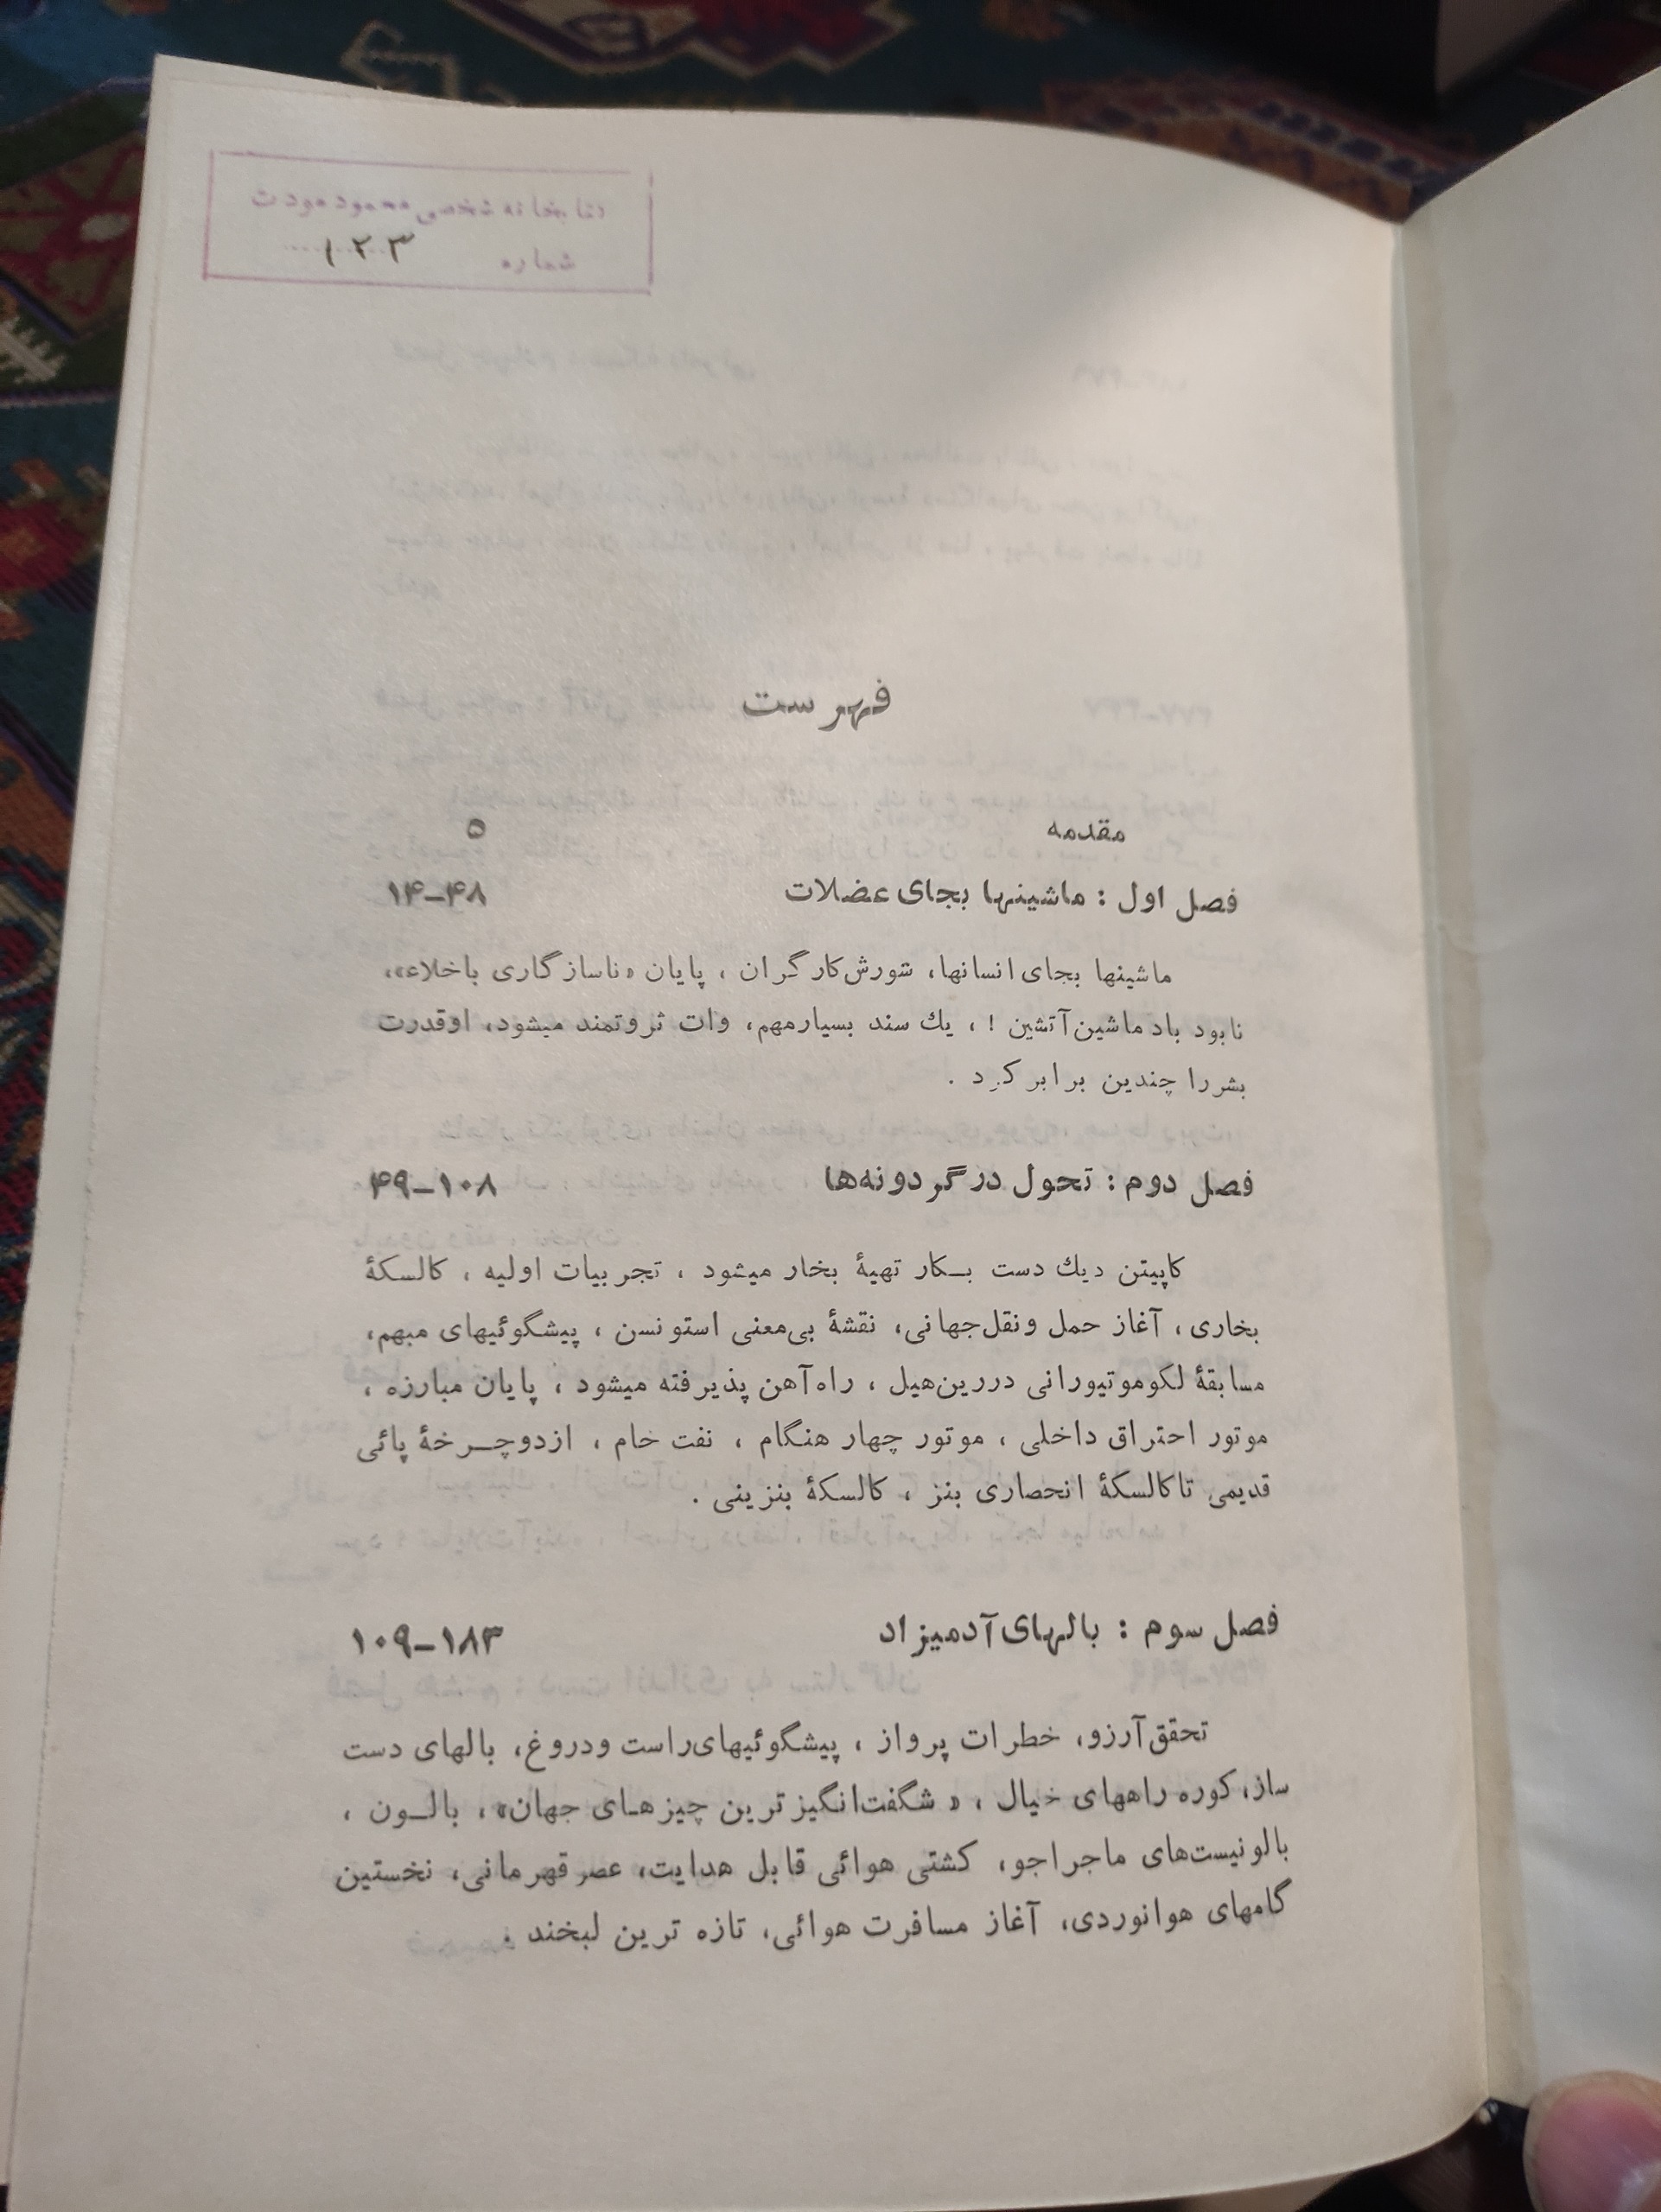 کتابخانه شخصی محمود مودت
شماره ۱۲۳
فهرست
مقدمه ۵
فصل اول : ماشینها بجای عضلات ۱۴-۴۸
ماشینها بجای انسانها، شورش کارگران ، پایان «ناسازگاری باخلاء»،
نابود باد ماشین آتشین ! ، یك سند بسیارمهم، وات ثروتمند میشود، اوقدرت
بشررا چندین برابر کرد .
فصل دوم : تحول درگردونه‌ها ۴۹-۱۰۸
کاپیتن دیك دست بـکار تهیهٔ بخار میشود ، تجربیات اولیه ، کالسکهٔ
بخاری ، آغاز حمل ونقل جهانی، نقشهٔ بی‌معنی استونسن ، پیشگوئیهای مبهم،
مسابقهٔ لکوموتیورانی دررین‌هیل ، راه‌آهن پذیرفته میشود ، پایان مبارزه ،
موتور احتراق داخلی ، موتور چهار هنگام ، نفت خام ، ازدوچـرخهٔ پائی
قدیمی تاکالسکهٔ انحصاری بنز ، کالسکهٔ بنزینی .
فصل سوم : بالهای آدمیزاد ۱۰۹-۱۸۳
تحقق آرزو، خطرات پرواز ، پیشگوئیهای‌راست ودروغ، بالهای دست
ساز، کوره راههای خیال ، « شگفت‌انگیزترین چیزهـای جهان» ، بالـون ،
بالونیست‌های ماجراجو، کشتی هوائی قابل هدایت، عصر قهرمانی، نخستین
گامهای هوانوردی، آغاز مسافرت هوائی، تازه ترین لبخند .